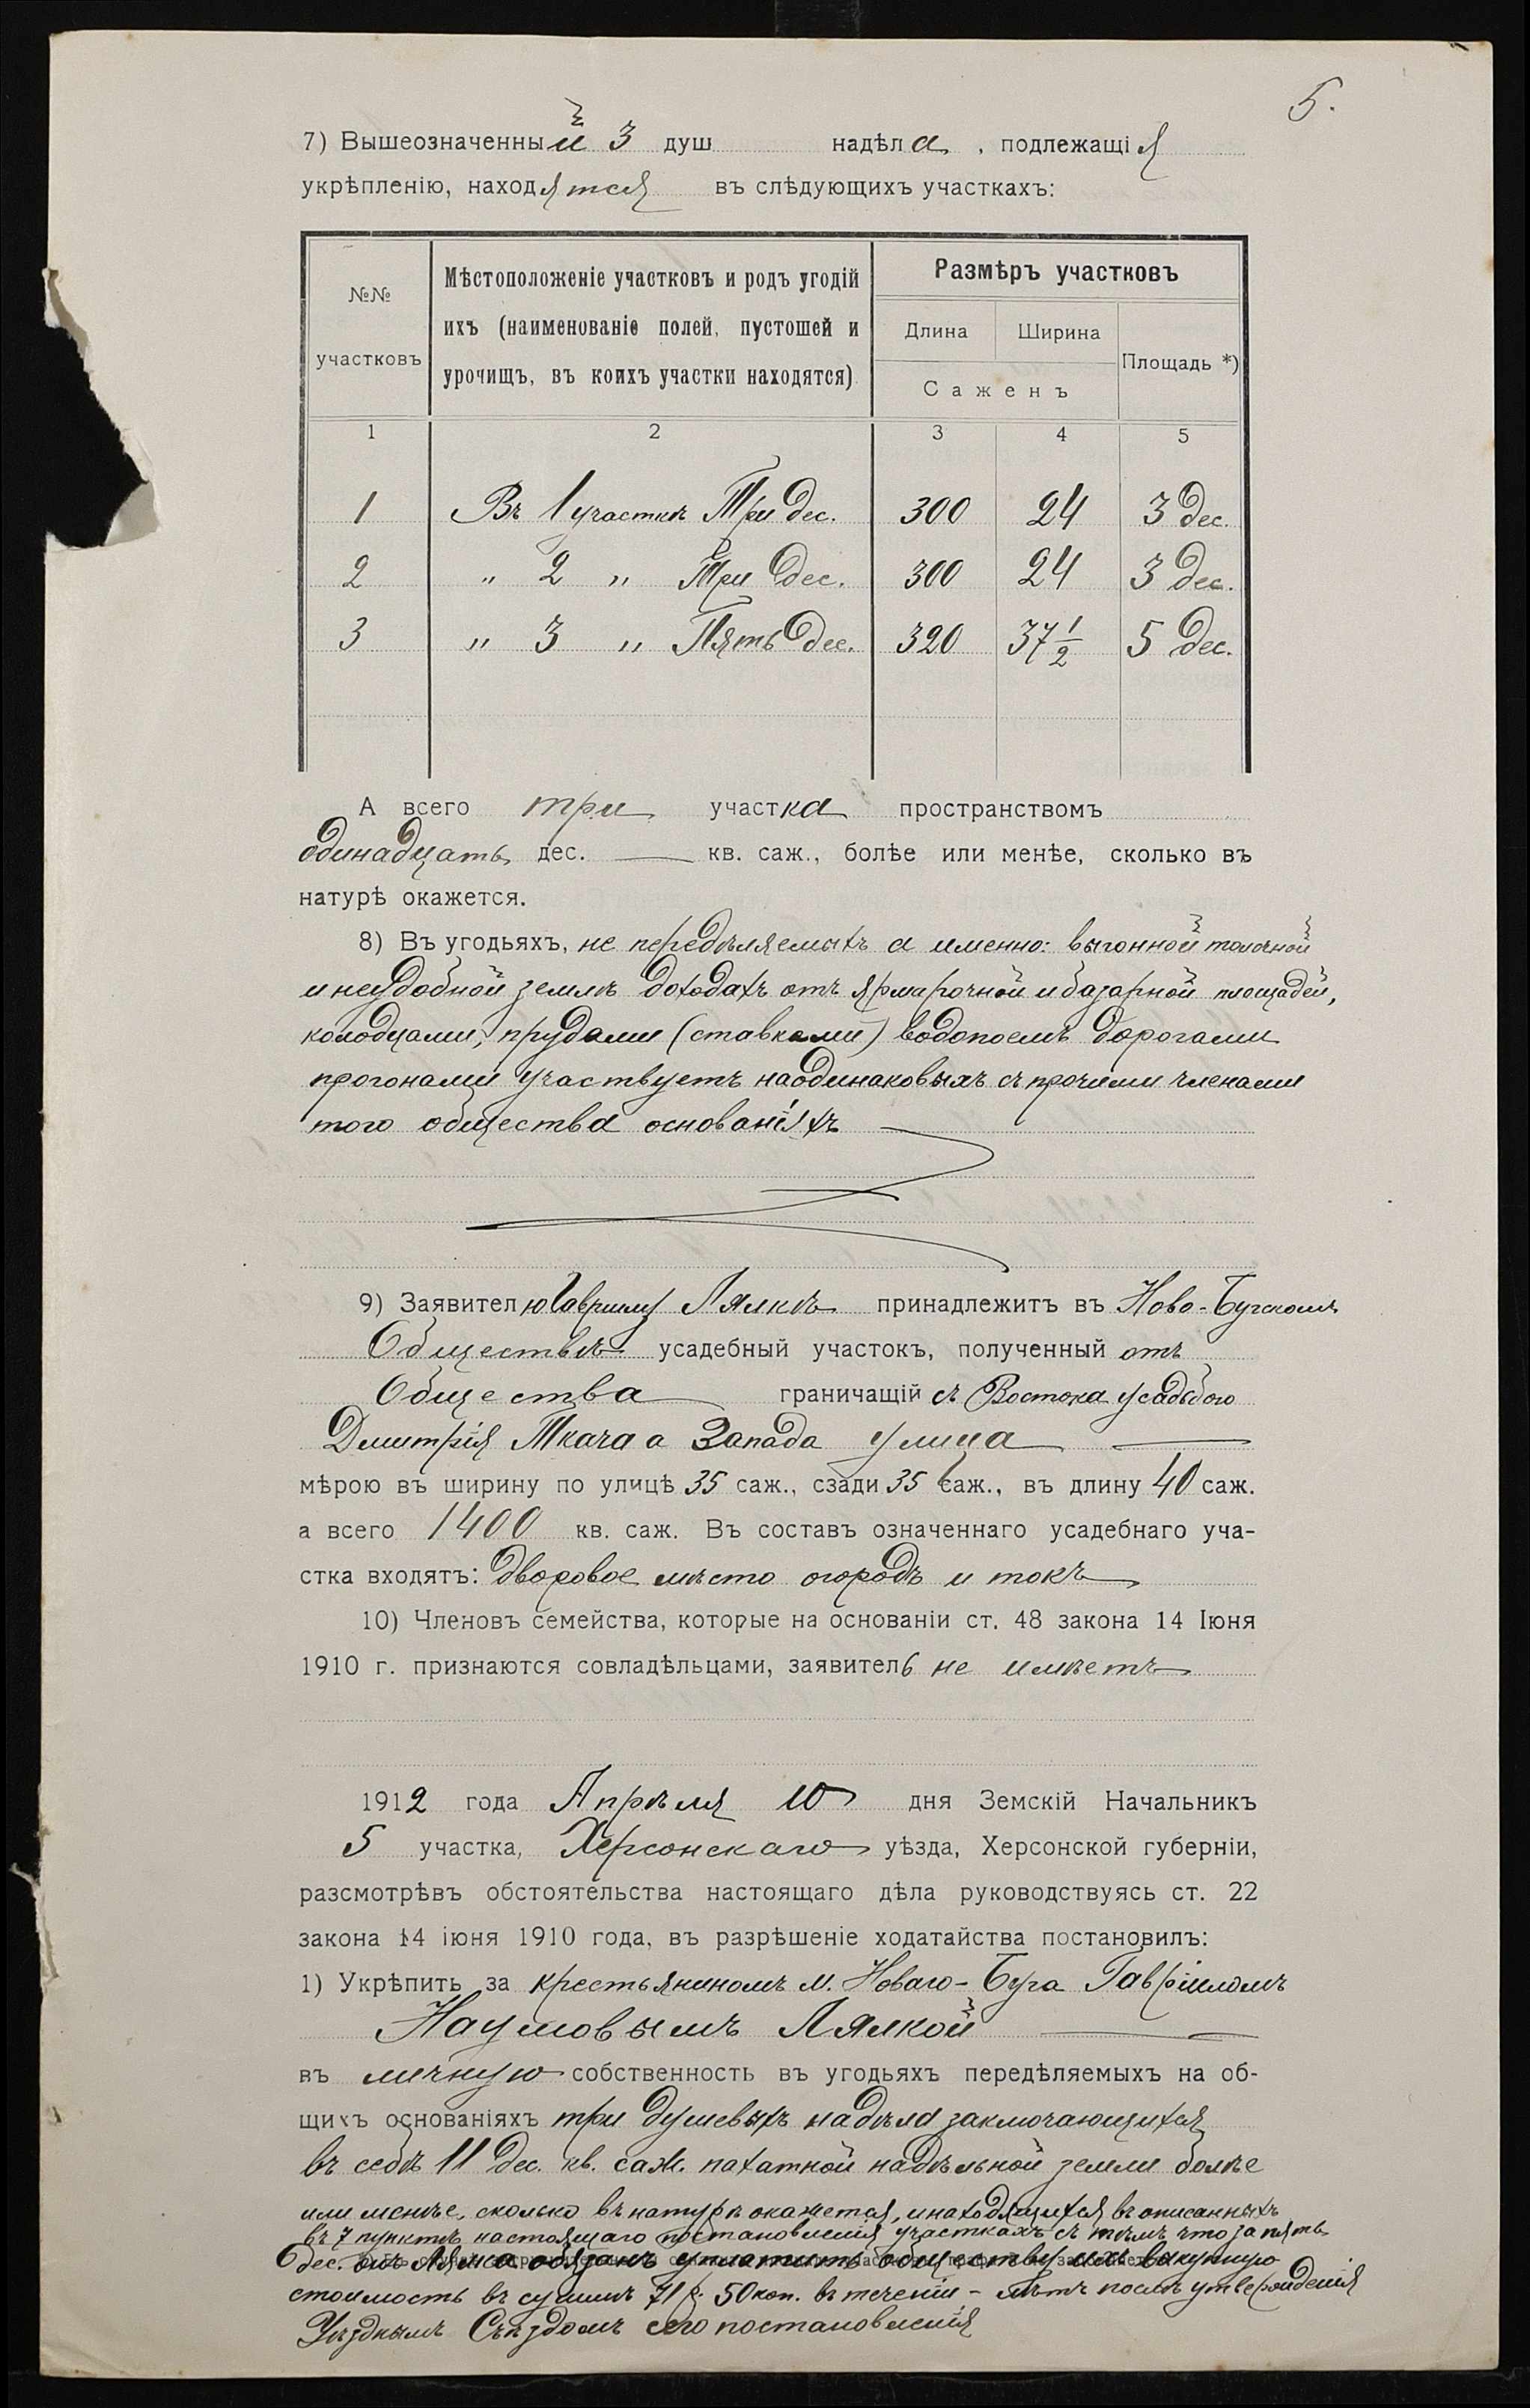 5.
7) Вышеозначенный 3 душ надѣла , подлежащія
укрѣпленію, находятся въ слѣдующихъ участкахъ:
№№ участковъ
Мѣстоположеніе участковъ и родъ угодій
ихъ (наименованіе полей, пустошей и
урочищъ, въ коихъ участки находятся)
Размѣръ участковъ
Длина Ширина Площадь *)
Саженъ
1 2 3 4 5
1 Въ 1 участкѣ Три дес. 300 24 3 дес.
2 „ 2 „ Три дес. 300 24 3 дес.
3 „ 3 „ Пять дес. 320 37 1/2 5 дес.
А всего три участка пространствомъ
одинадцать дес. — кв. саж., болѣе или менѣе, сколько въ
натурѣ окажется.
8) Въ угодьяхъ, не передѣляемыхъ а именно: выгонной толочной
и неудобной землѣ доходахъ отъ ярмарочной и базарной площадей,
колодцами, прудами (ставками) водопоемъ дорогами
прогонами участвуетъ на одинаковыхъ съ прочими членами
того общества основаніяхъ
9) Заявителю Гаврилу Лялкѣ принадлежитъ въ Ново-Бугскомъ
Обществѣ усадебный участокъ, полученный отъ
Общества граничащій съ Востока усадьбою
Дмитрія Ткача а Запада улица
мѣрою въ ширину по улицѣ 35 саж., сзади 35 саж., въ длину 40 саж.
а всего 1400 кв. саж. Въ составъ означеннаго усадебнаго уча-
стка входятъ: дворовое мѣсто огородъ и токъ
10) Членовъ семейства, которые на основаніи ст. 48 закона 14 Іюня
1910 г. признаются совладѣльцами, заявитель не имѣетъ
1912 года Апрѣля 10 дня Земскій Начальникъ
5 участка, Херсонскаго уѣзда, Херсонской губерніи,
разсмотрѣвъ обстоятельства настоящаго дѣла руководствуясь ст. 22
закона 14 іюня 1910 года, въ разрѣшеніе ходатайства постановилъ:
1) Укрѣпить за крестьяниномъ м. Новаго-Буга Гавріиломъ
Наумовымъ Лялкой
въ личную собственность въ угодьяхъ передѣляемыхъ на об-
щихъ основаніяхъ три душевыхъ надѣла заключающихся
въ себѣ 11 дес. кв. саж. пахатной надѣльной земли болѣе
или менѣе, сколько въ натурѣ окажется, и находящихся въ описанныхъ
въ 7 пунктѣ настоящаго постановленія участкахъ съ тѣмъ что за пять
дес. онъ Лялка обязанъ уплатить обществу ихъ выкупную
стоимость въ суммѣ 71 р. 50 коп. въ теченіи – лѣтъ послѣ утвержденія
Уѣзднымъ Съѣздомъ сего постановленія